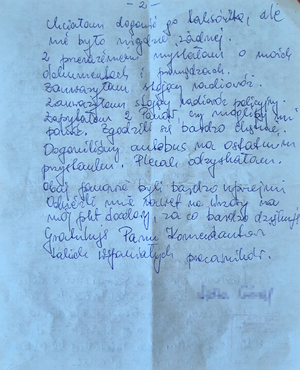 - 2 -
Chciałam dogonić go taksówką, ale
nie było nigdzie żadnej.
Z przerażeniem myślałam o moich
dokumentach i pieniądzach.
Zauważyłam stojący radiowóz.
Zauważyłam stojący radiowóz policyjny.
Zapytałam 2 Panów, czy mogliby mi
pomóc. Zgodzili się bardzo chętnie.
Dogoniliśmy autobus na ostatnim
przystanku. Plecak odzyskałam.
Obaj panowie byli bardzo uprzejmi
Odwieźli mnie nawet na
mój plot za co bardzo dziękuję
Gratuluję Panu Komendantowi
takich wspaniałych pracowników.